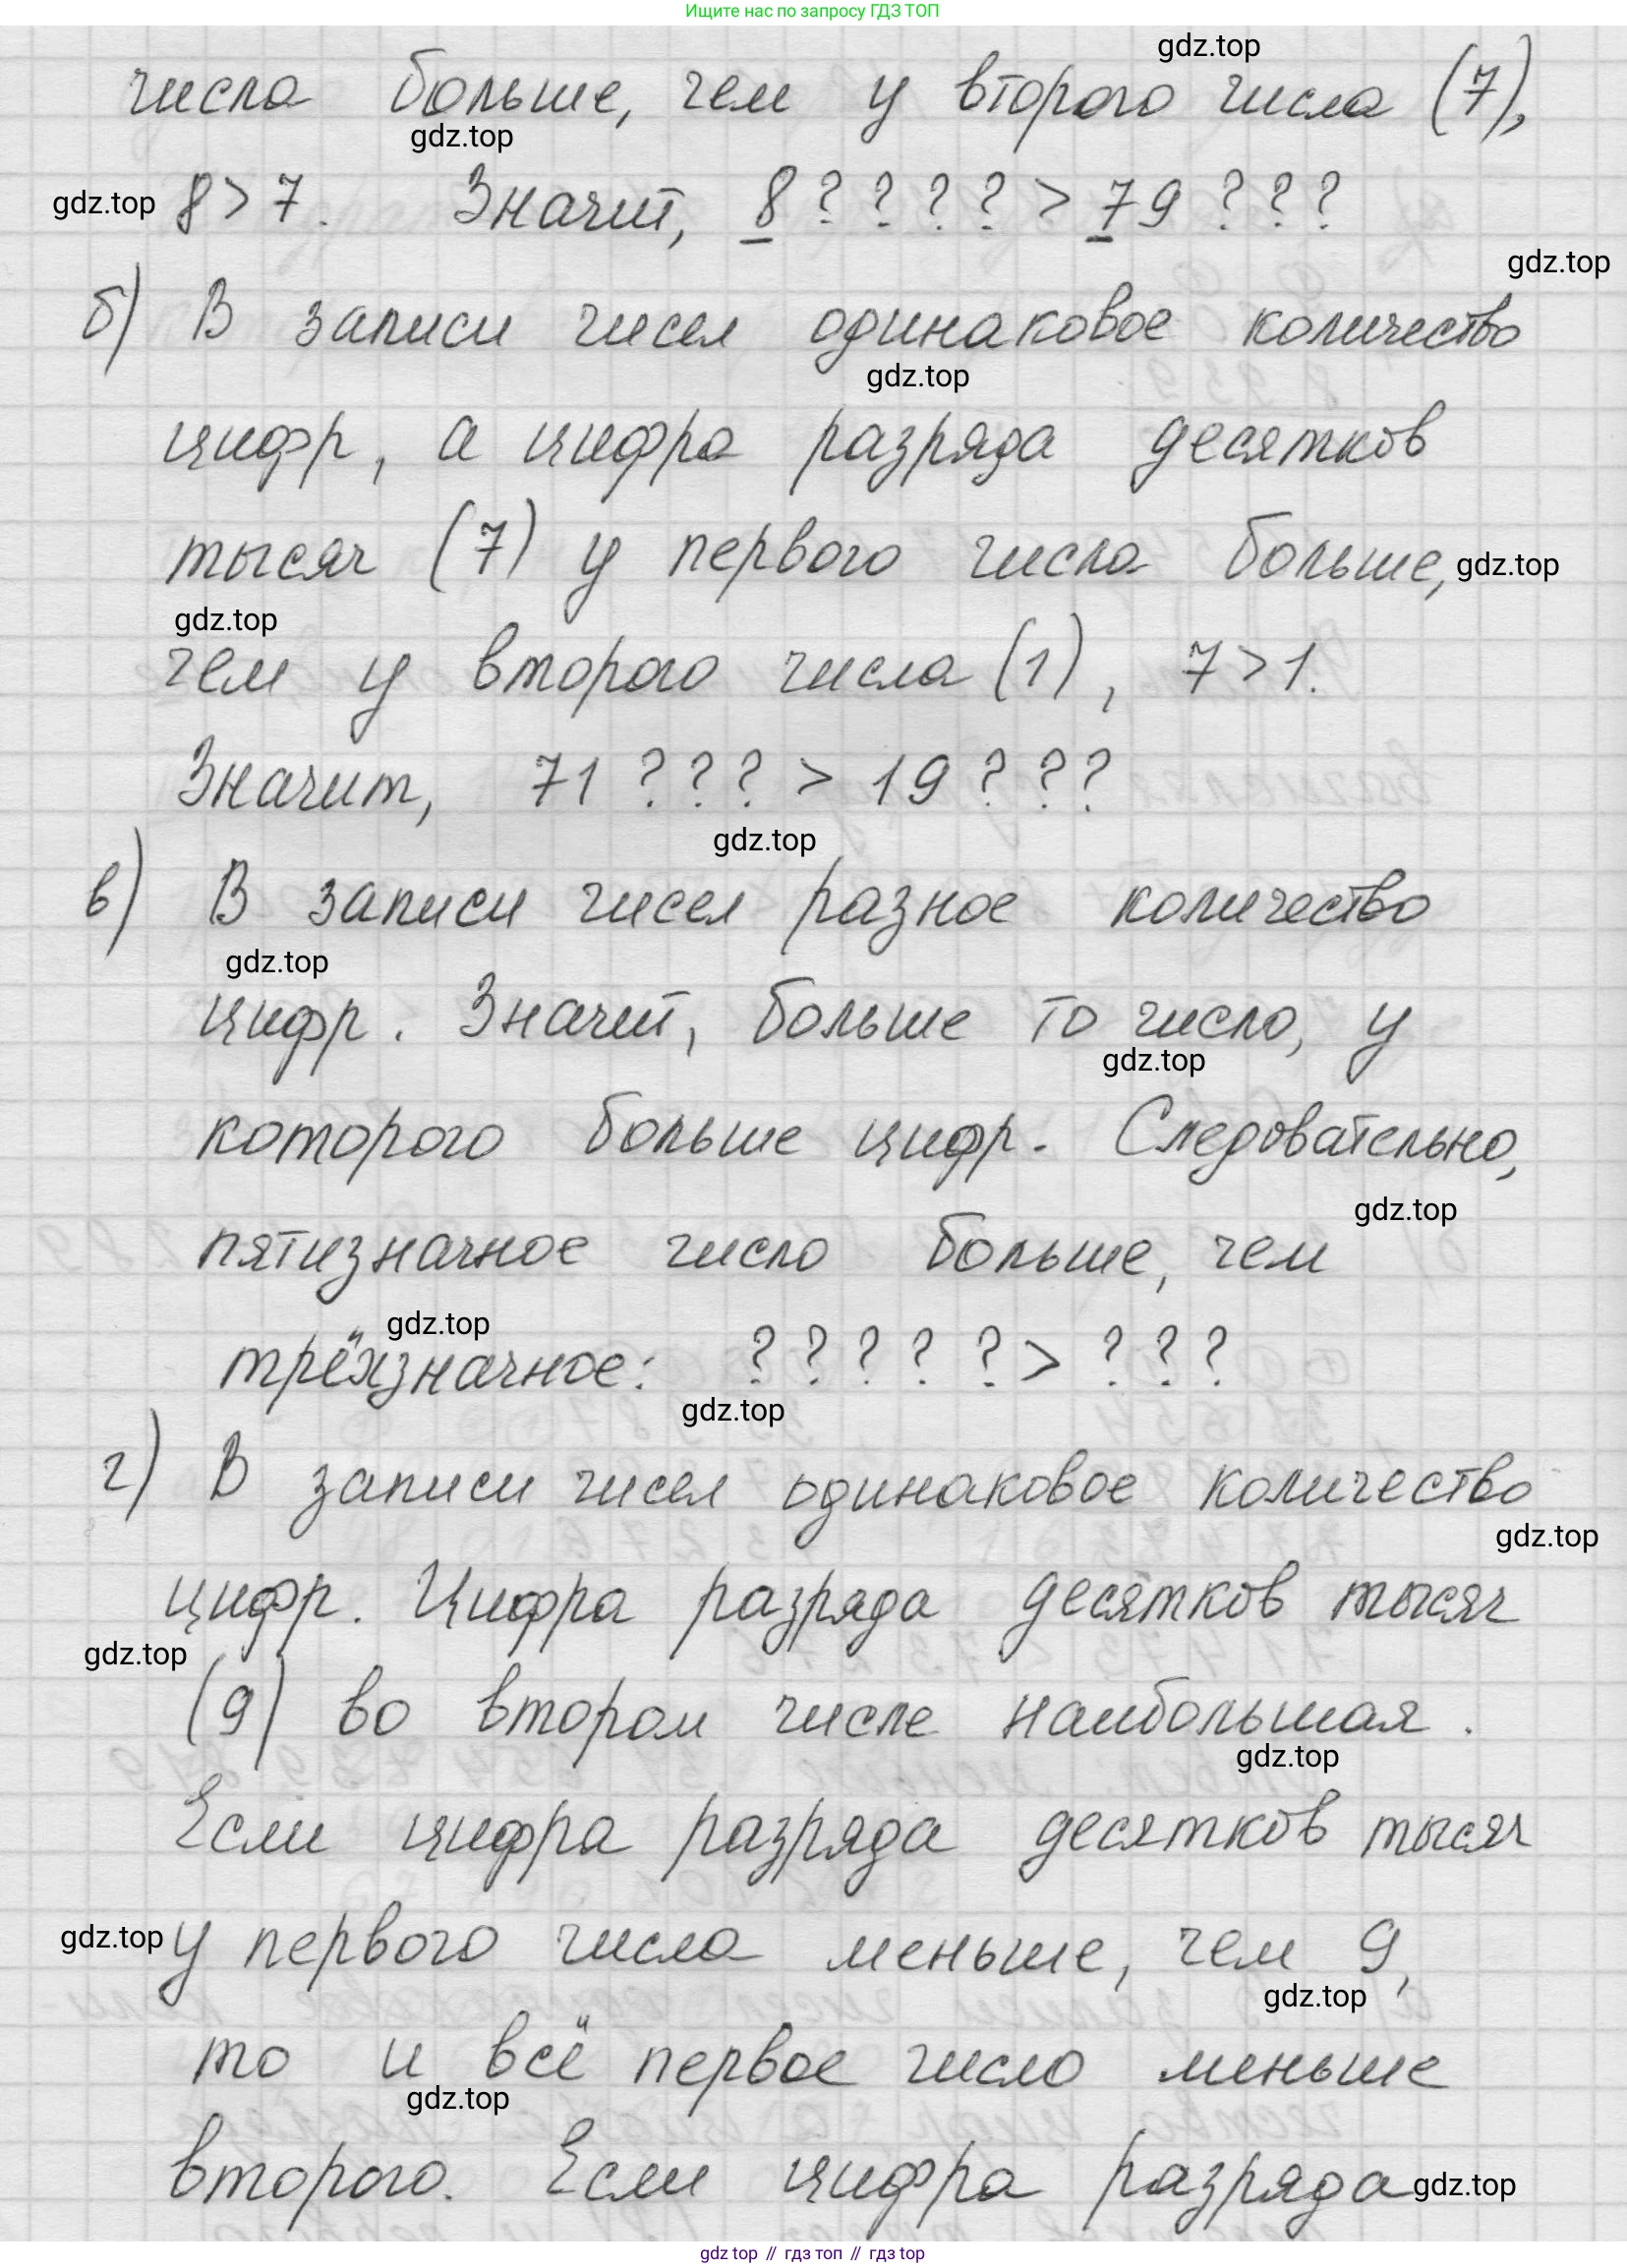 Ищите нас по запросу ГДЗ ТОП
gdz.top
числа больше, чем у второго числа (7),
gdz.top
gdz.top 8 > 7. Значит, 8???? > 79???
gdz.top
б) В записи чисел одинаковое количество
gdz.top
цифр, а цифра разряда десятков
тысяч (7) у первого числа больше, gdz.top
gdz.top
чем у второго числа (1), 7 > 1.
Значит, 71??? > 19???
gdz.top
в) В записи чисел разное количество
gdz.top
цифр. Значит, больше то число, у
gdz.top
которого больше цифр. Следовательно,
gdz.top
пятизначное число больше, чем
gdz.top
трёхзначное: ????? > ???
gdz.top
г) В записи чисел одинаковое количество
gdz.top
цифр. Цифра разряда десятков тысяч
gdz.top
(9) во втором числе наибольшая.
gdz.top
Если цифра разряда десятков тысяч
gdz.top у первого числа меньше, чем 9,
gdz.top
то и всё первое число меньше
gdz.top
второго. Если цифра разряда gdz.top
gdz top // гдз топ // gdz top